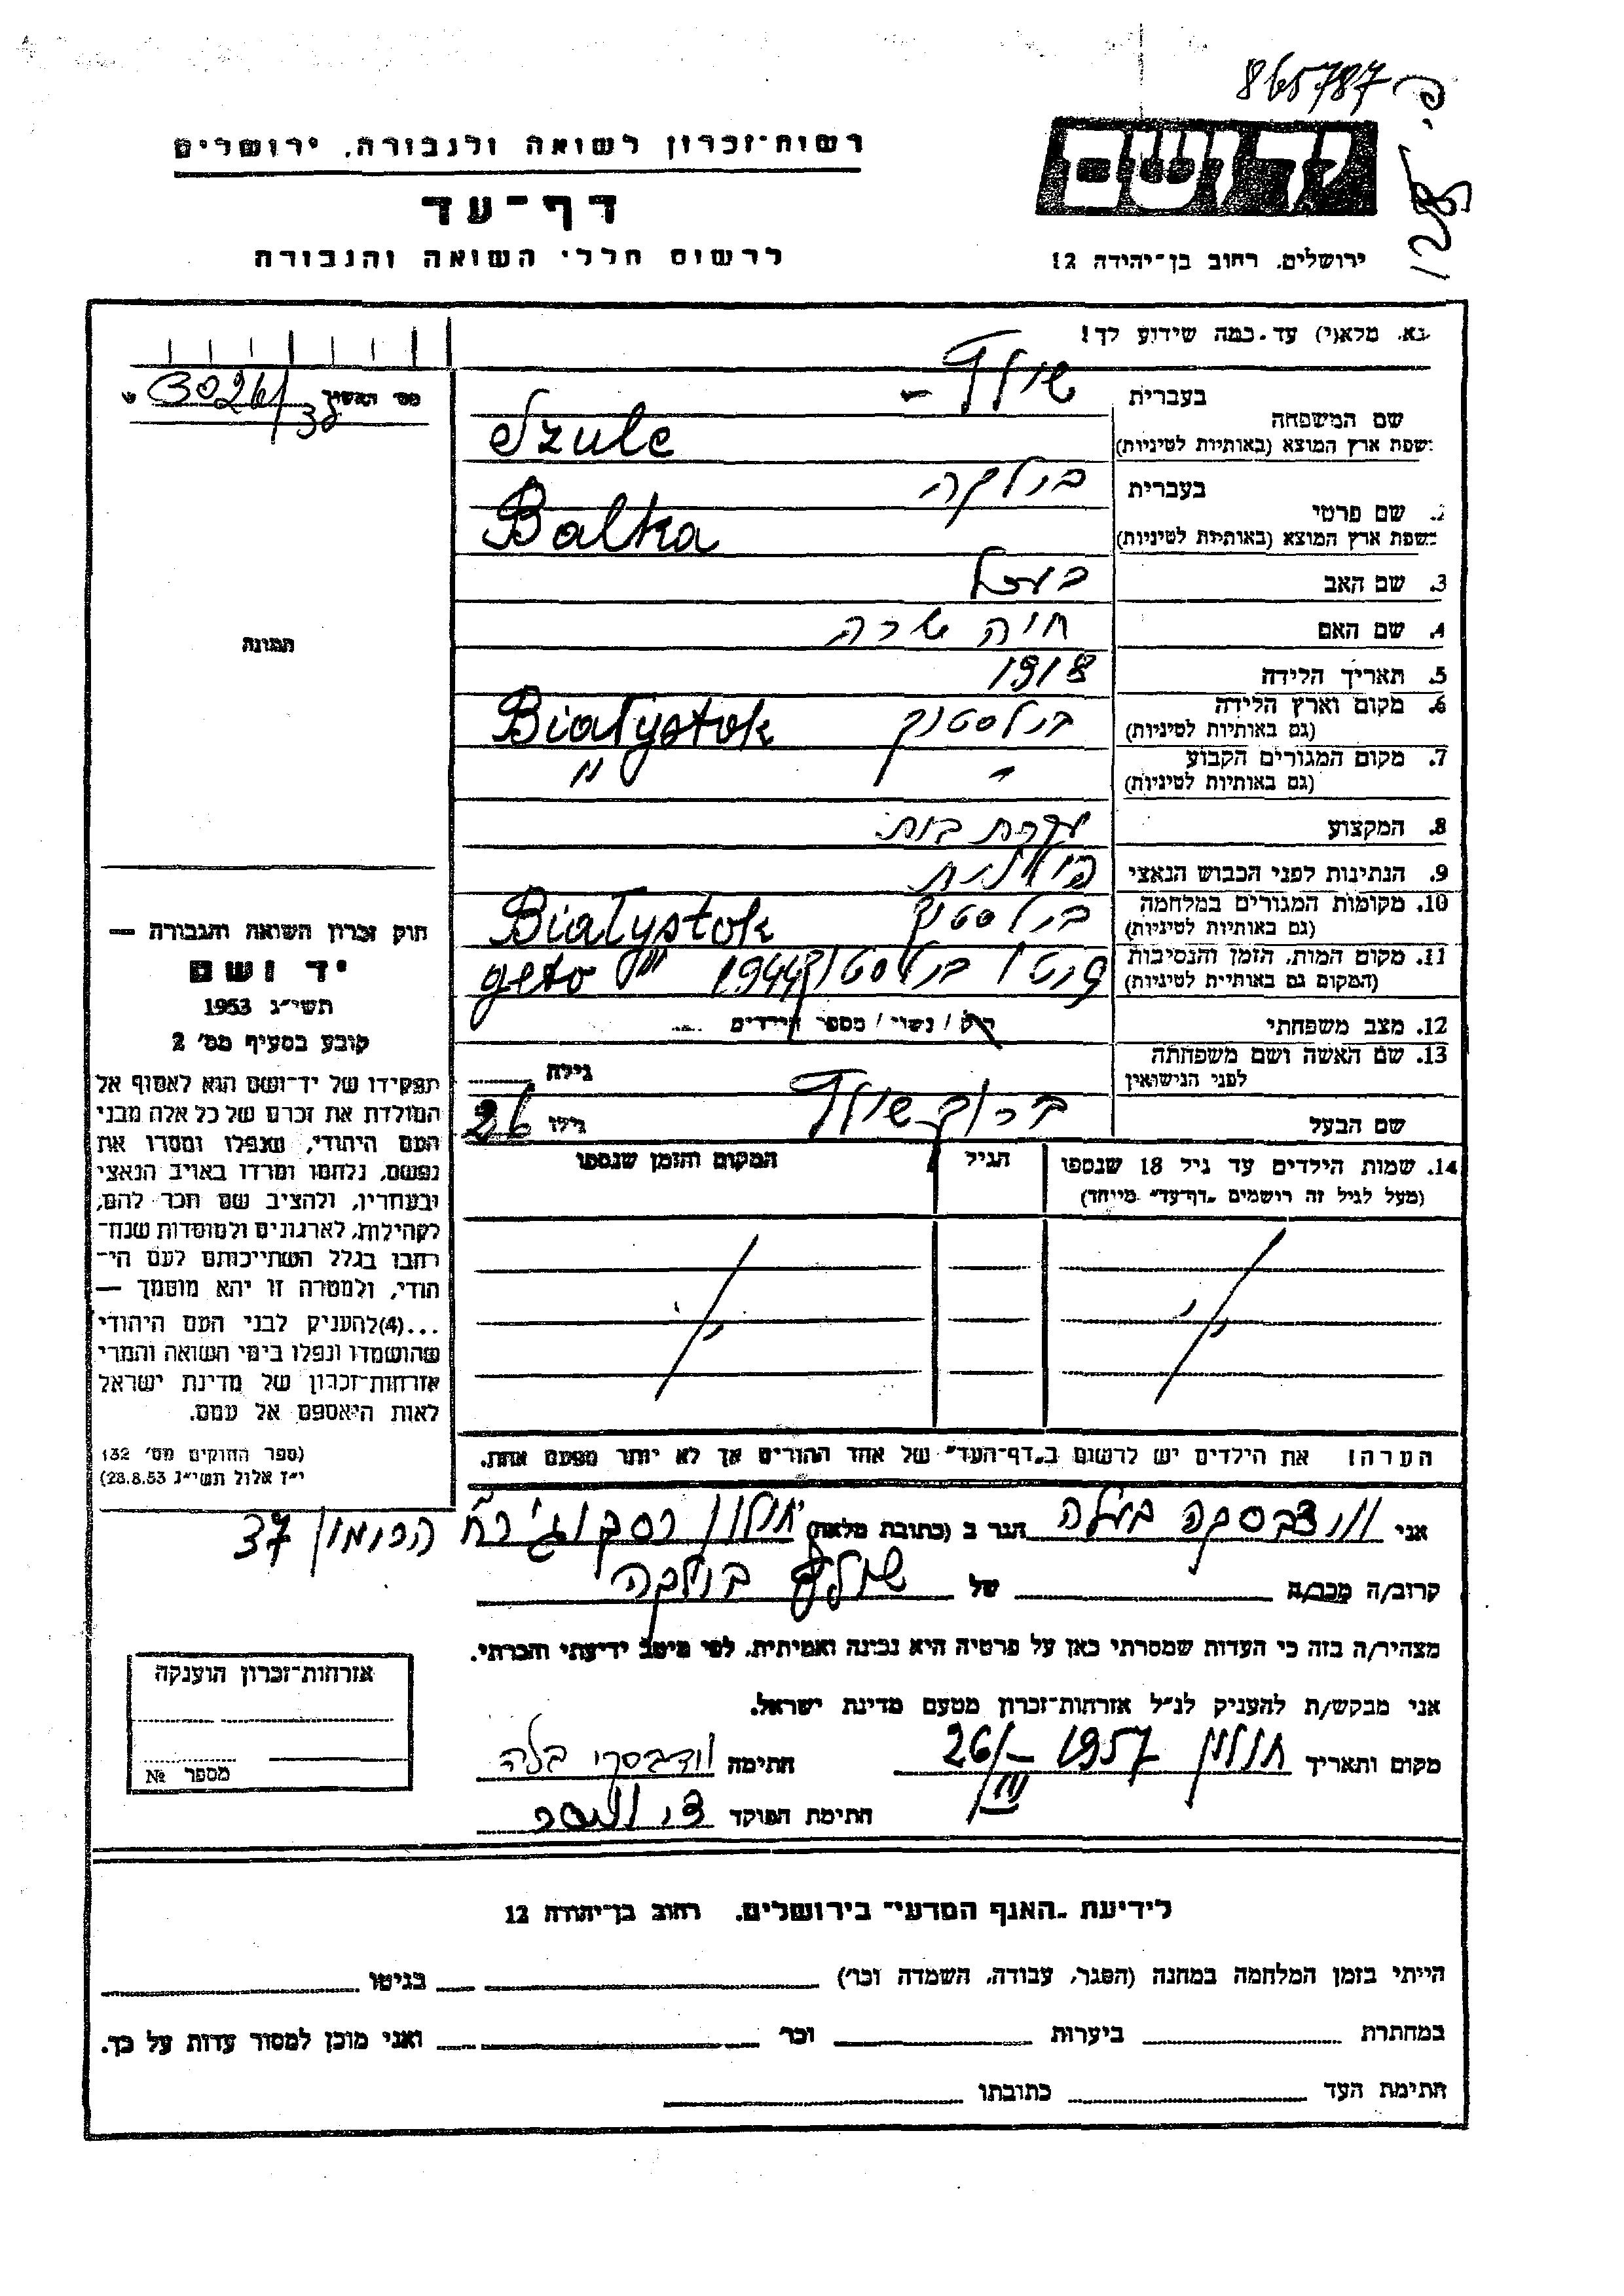 865787
128
רשות-זכרון לשואה ולגבורה, ירושלים
דף-עד
לרשום חללי השואה והגבורה
יד ושם
ירושלים, רחוב בן-יהודה 12
נא מלא(י) עד כמה שידוע לך!
מס' האשיך
שם המשפחה
בעברית
בשפת ארץ המוצא (באותיות לטיניות) Szulc
2. שם פרטי
בעברית
בשפת ארץ המוצא (באותיות לטיניות) Balka
3. שם האב
4. שם האם חיה שרה
5. תאריך הלידה 1918
6. מקום וארץ הלידה
(גם באותיות לטיניות) Białystok
7. מקום המגורים הקבוע "
(גם באותיות לטיניות) "
8. המקצוע עקרת בית
9. הנתינות לפני הכבוש הנאצי פולנית
10. מקומות המגורים במלחמה
(גם באותיות לטיניות) Białystok
11. מקום המות, הזמן והנסיבות
(המקום גם באותיות לטיניות) geto
12. מצב משפחתי רוק / נשוי / מספר הילדים
13. שם האשה ושם משפחתה
לפני הנישואין
גילה
שם הבעל ברוך שולץ גילו 26
14. שמות הילדים עד גיל 18 שנספו
(מעל לגיל זה רושמים "דף-עד" מיוחד)
הגיל
המקום והזמן שנספו
הערה: את הילדים יש לרשום ב"דף-העד" של אחד ההורים אך לא יותר מפעם אחת.
תמונה
חוק זכרון השואה והגבורה —
יד ושם
תשי"ג 1953
קובע בסעיף מס' 2
תפקידו של יד-ושם הוא לאסוף אל
המולדת את זכרם של כל אלה מבני
העם היהודי, שנפלו ומסרו את
נפשם, נלחמו ומרדו באויב הנאצי
ובעוזריו, ולהציב שם וזכר להם,
לקהילות, לארגונים ולמוסדות שנח-
רבו בגלל השתייכותם לעם הי-
הודי, ולמטרה זו יהא מוסמך —
...(4)להעניק לבני העם היהודי
שהושמדו ונפלו בימי השואה והמרי
אזרחות-זכרון של מדינת ישראל
לאות היאספם אל עמם.
(ספר החוקים מס' 132
י"ז אלול תשי"ג 28.8.53)
אני בלה הגר ב (כתובת מלאה) חולון 37
קרוב/ה מכר/ה של שולץ
מצהיר/ה בזה כי העדות שמסרתי כאן על פרטיה היא נכונה ואמיתית, לפי מיטב ידיעתי והכרתי.
אני מבקש/ת להעניק לנ"ל אזרחות-זכרון מטעם מדינת ישראל.
מקום ותאריך חולון 26/III - 1957 חתימה בלה
חתימת הפוקד
אזרחות-זכרון הוענקה
מספר №
לידיעת "האגף המדעי" בירושלים, רחוב בן-יהודה 12
הייתי בזמן המלחמה במחנה (הסגר, עבודה, השמדה וכו') בגיטו
במחתרת ביערות וכו' ואני מוכן למסור עדות על כך.
חתימת העד כתובתו